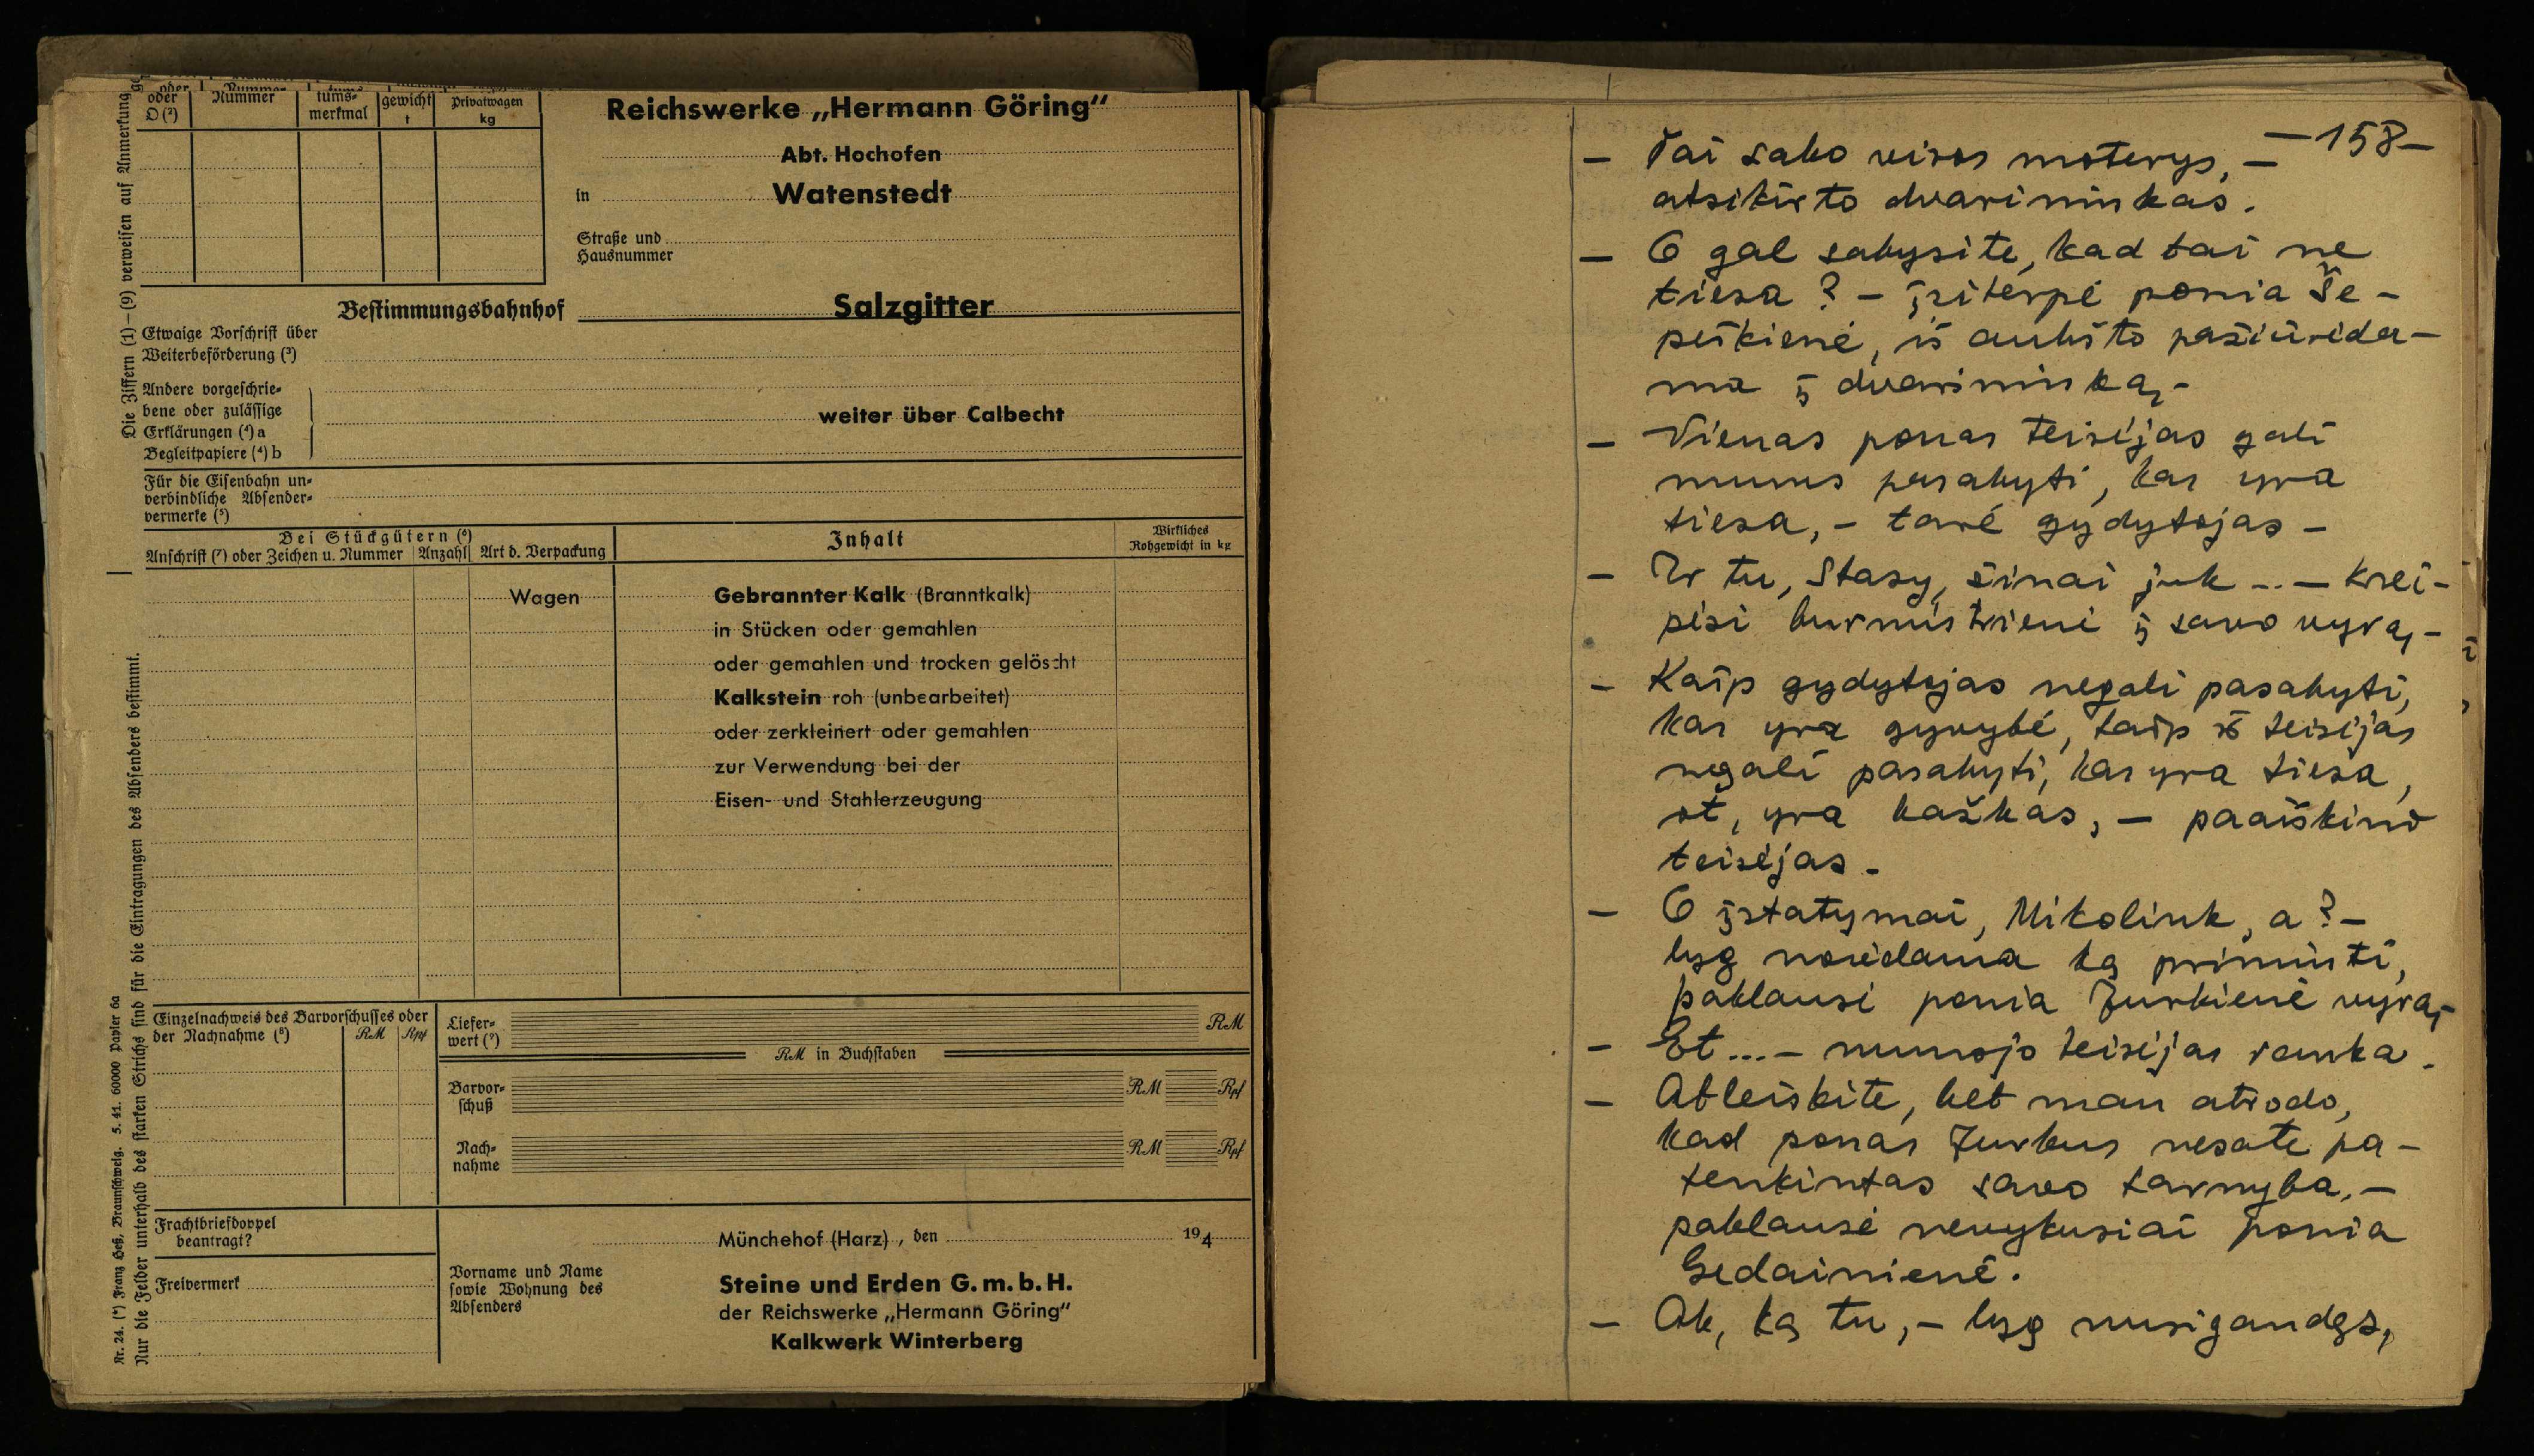 oder
D (²)
Nummer
tums-
merkmal
gewicht
t
Privatwagen
kg
Die Ziffern (1)—(9) verweisen auf Anmerkung
Reichswerke „Hermann Göring“
Abt. Hochofen
in Watenstedt
Straße und
Hausnummer
Bestimmungsbahnhof Salzgitter
Etwaige Vorschrift über
Weiterbeförderung (³)
Andere vorgeschrie-
bene oder zulässige
Erklärungen (⁴) a
Begleitpapiere (⁴) b
weiter über Calbecht
Für die Eisenbahn un-
verbindliche Absender-
vermerke (⁵)
Bei Stückgütern (⁶)
Anschrift (⁷) oder Zeichen u. Nummer Anzahl Art d. Verpackung
Inhalt
Wirkliches
Rohgewicht in kg
Wagen
Gebrannter Kalk (Branntkalk)
in Stücken oder gemahlen
oder gemahlen und trocken gelöscht
Kalkstein roh (unbearbeitet)
oder zerkleinert oder gemahlen
zur Verwendung bei der
Eisen- und Stahlerzeugung
Nur die Felder unterhalb des starken Strichs sind für die Eintragungen des Absenders bestimmt.
Nr. 24. (*) Franz Heß, Braunschweig. 5. 41. 60000 Papier 6a
Einzelnachweis des Barvorschusses oder
der Nachnahme (⁸) RM Rpf
Liefer-
wert (⁹)
RM
RM in Buchstaben
Barvor-
schuß
RM Rpf
Nach-
nahme
RM Rpf
Frachtbriefdoppel
beantragt?
Freivermerk
Münchehof (Harz), den 194
Vorname und Name
sowie Wohnung des
Absenders
Steine und Erden G.m.b.H.
der Reichswerke „Hermann Göring“
Kalkwerk Winterberg
—158—
– Tai sako visos moterys, –
atsikirto dvarininkas.
– O gal sakysite, kad tai ne
tiesa? – įsiterpė ponia Še-
peškienė, iš aukšto pažiūrėda-
ma į dvarininką, –
– Vienas ponas teisėjas gali
mums pasakyti, kas yra
tiesa, – tarė gydytojas –
– Ir tu, Stasy, žinai juk ... – krei-
pėsi burmistrienė į savo vyrą, –
– Kaip gydytojas negali pasakyti,
kas yra gyvybė, taip ir teisėjas
negali pasakyti, kas yra tiesa,
ot, yra kažkas, – paaiškino
teisėjas –
– O įstatymai, Mikoliuk, a? –
lyg norėdama ką priminti,
paklausė ponia Žurkienė vyrą, –
– Et ... – numojo teisėjas ranka.
– Atleiskite, bet man atrodo,
kad ponas Žurkus nesate pa-
tenkintas savo tarnyba, –
paklausė nevykusiai ponia
Gedainienė.
– Ak, ką tu, – lyg nusigandęs,